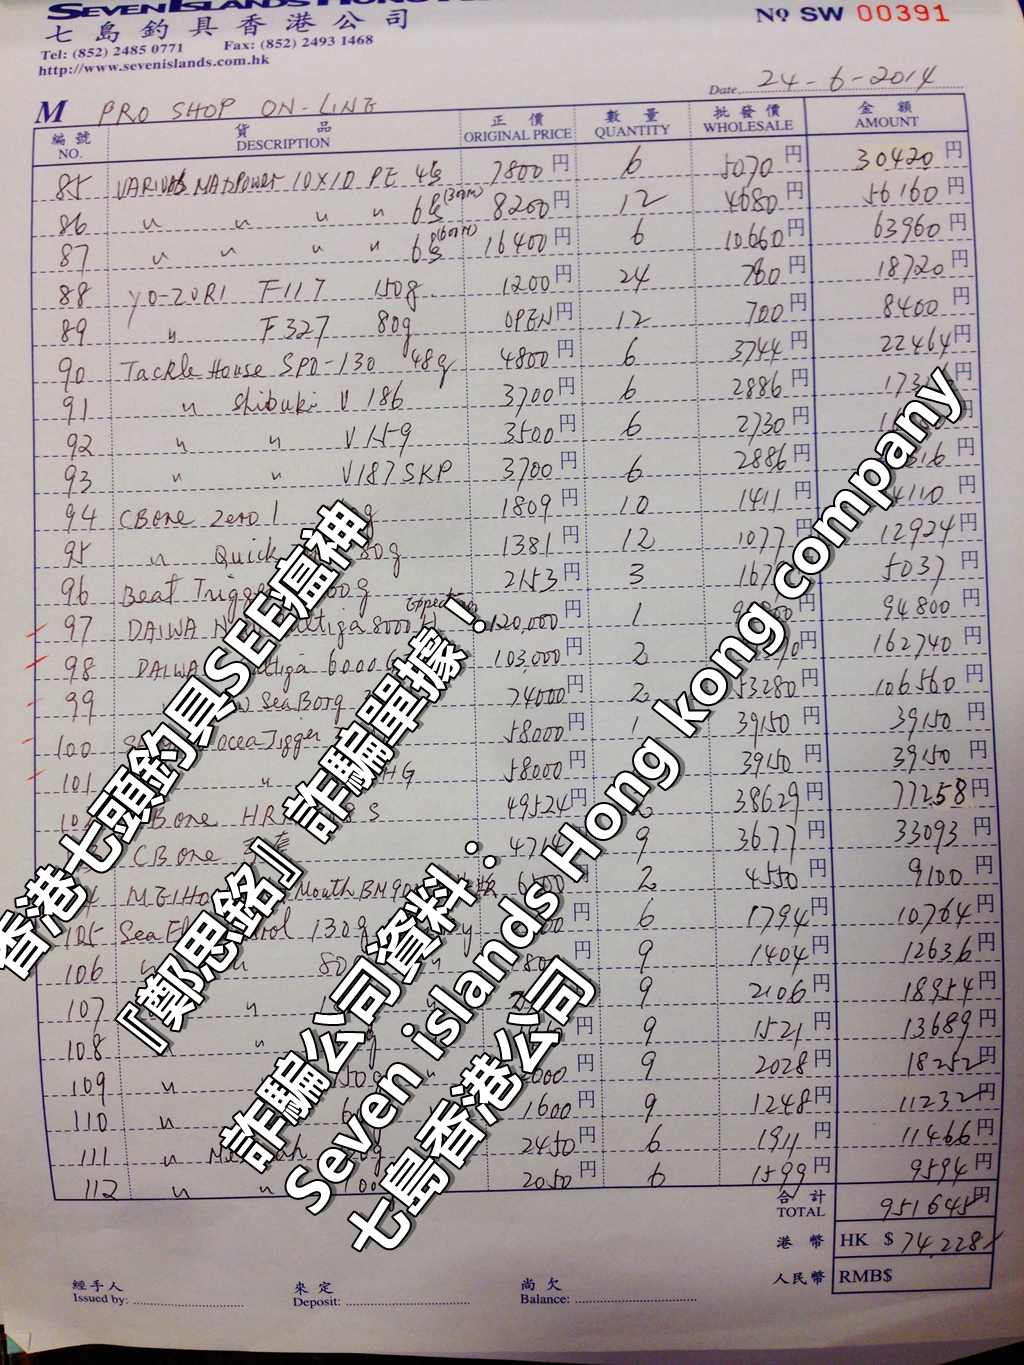 SEVEN ISLANDS HONG
七島釣具香港公司
Tel: (852) 2485 0771 Fax: (852) 2493 1468
http://www.sevenislands.com.hk
No SW 00391
Date 24-6-2014
M PRO SHOP ON-LINE
編號 貨品 正價 數量 批發價 金額
NO. DESCRIPTION ORIGINAL PRICE QUANTITY WHOLESALE AMOUNT
85 VARIVAS MAXPOWER 10X10 PE 4号 7800円 6 5070円 30420円
86 〃 〃 〃 〃 6号(300M) 8200円 12 4680円 56160円
87 〃 〃 〃 〃 6号(600M) 16400円 6 10660円 63960円
88 YO-ZURI F117 150g 1200円 24 780円 18720円
89 〃 F327 80g OPEN円 12 700円 8400円
90 Tackle House SPD-130 48g 4800円 6 3744円 22464円
91 〃 Shibuki V 186 3700円 6 2886円 円
92 〃 〃 V159 3500円 6 2730円
93 〃 〃 V187SKP 3700円 6 2886円
94 CB One Zero 1 g 1809円 10 1411円 円
95 〃 Quick 80g 1381円 12 1077円 12924円
96 Beat Trigger g 2153円 3 5037円
97 DAIWA 8000H Expedition 120,000円 1 94800円
98 DAIWA 6000G 103,000円 2 162740円
99 SeaBorg 74000円 2 53280円 106560円
100 OceaJigger 58000円 1 39150円 39150円
101 〃 HG 58000円 39150円 39150円
CB One HR S 49524円 38629円 77258円
CB One 9 3677円 33093円
MEIHO Mouth 2 4550円 9100円
105 Sea 130g 6 1794円 10764円
106 〃 〃 9 1404円 12636円
107 〃 9 2106円 18954円
108 〃 〃 9 1521円 13689円
109 〃 150g 円 9 2028円 18252円
110 〃 1600円 9 1248円 11232円
111 〃 2450円 6 1911円 11466円
112 〃 〃 2050円 6 1599円 9594円
合計
TOTAL 951645円
港幣 HK $ 74,228
人民幣 RMB$
經手人 來定 尚欠
Issued by: Deposit: Balance:
香港七頭釣具SEE瘟神
『鄭思銘』詐騙單據！
詐騙公司資料：
Seven islands Hong kong company
七島香港公司